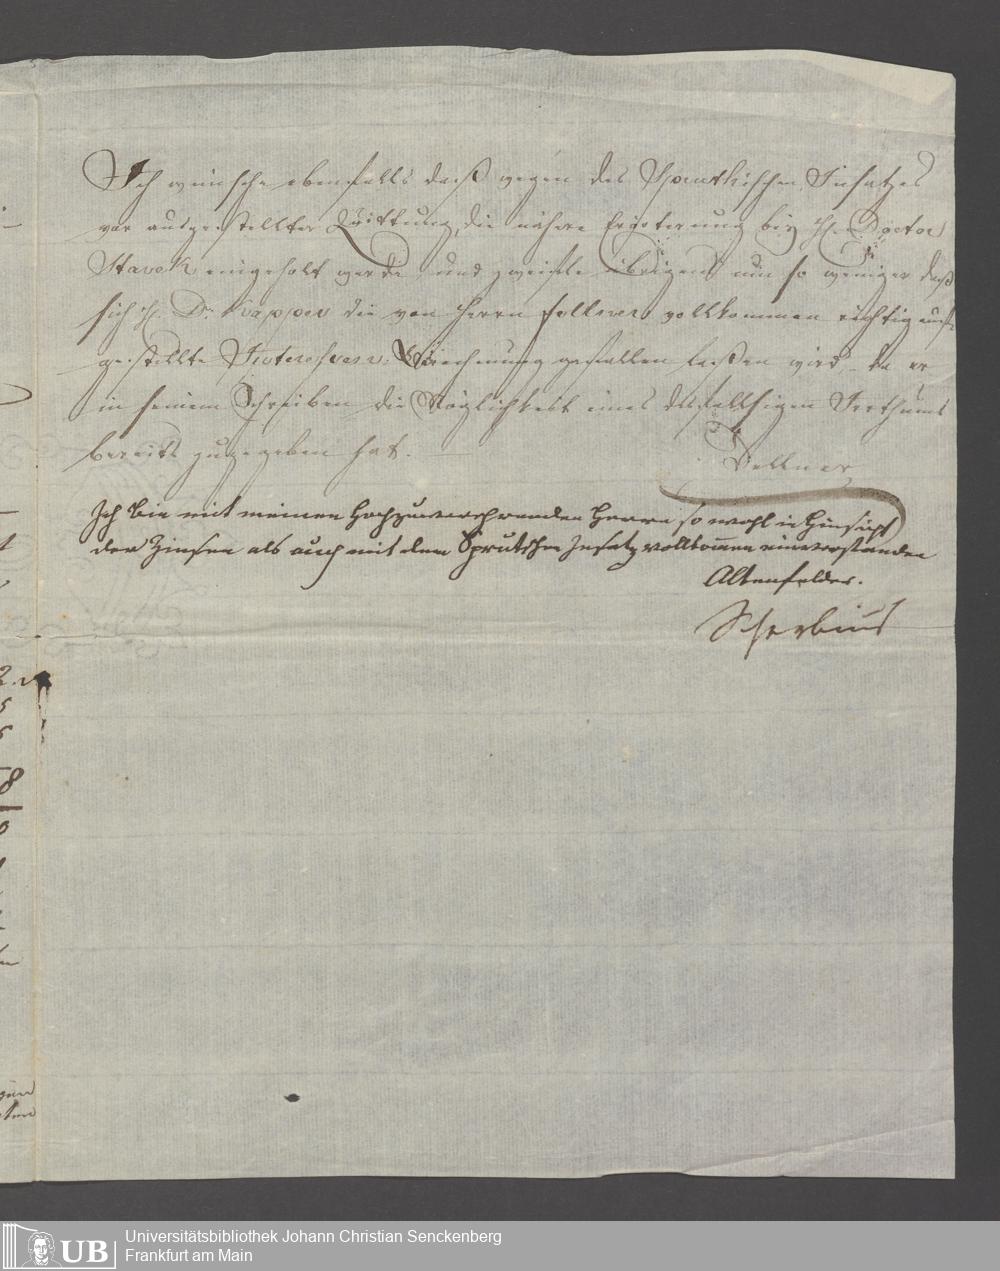 Ich wünsche ebenfalls daß wegen des Sprutkischen Insatzes
vor ausgestellter Quittung, die nähere Erörterung bey H. Doctor
Starck eingeholt werde und zweifle übrigens um so weniger daß
sich H. Dr. Kappes die von Herrn Fellner vollkommen richtig auf-
gestellte Interessen Berechnung gefallen laßen wird, da er
in seinem Schreiben die Möglichkeit eines desfallsigen Irrthums
bereits zugegeben hat.
Ich bin mit meinen Hochzuverehrenden Herrn so wohl in Hinsicht
der Zinsen als auch mit dem Sprutschen Insatz vollkommen einverstanden
Altenfelder.
Scherbius
UB
Universitätsbibliothek Johann Christian Senckenberg
Frankfurt am Main